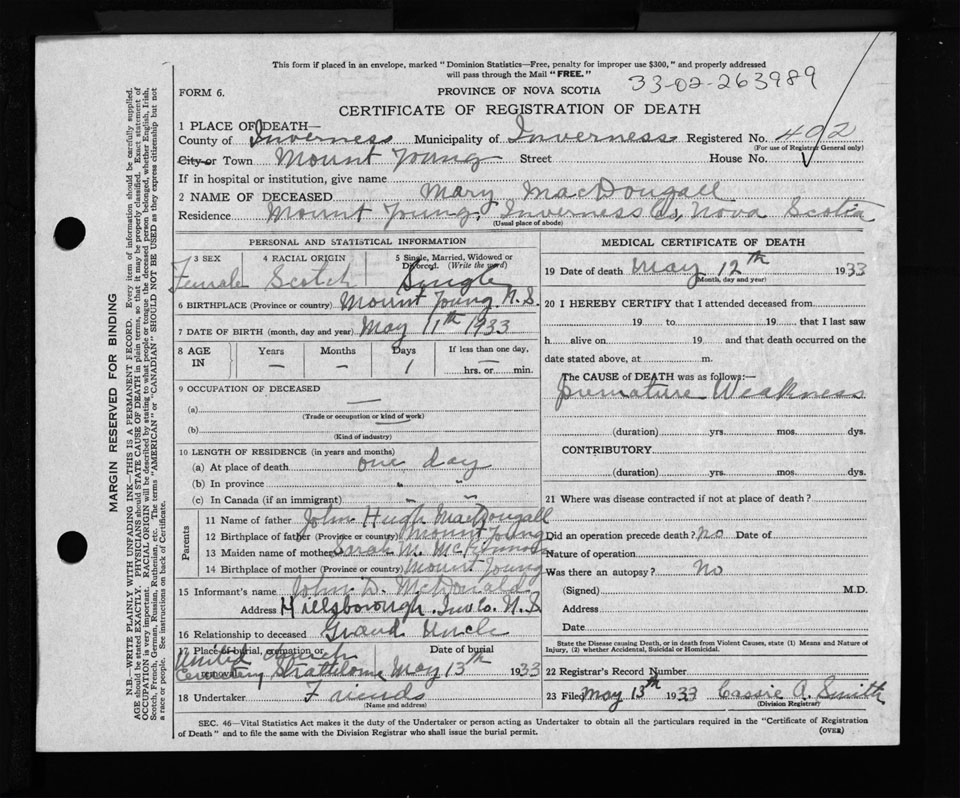 This form if placed in an envelope, marked "Dominion Statistics—Free, penalty for improper use $300," and properly addressed
will pass through the Mail "FREE."
33-02-263989
FORM 6.
PROVINCE OF NOVA SCOTIA
CERTIFICATE OF REGISTRATION OF DEATH
1 PLACE OF DEATH—
County of Inverness Municipality of Inverness Registered No. 402
(For use of Registrar General only)
City or Town Mount Young Street House No.
If in hospital or institution, give name
2 NAME OF DECEASED Mary MacDougall
Residence Mount Young, Inverness Co, Nova Scotia
(Usual place of abode)
PERSONAL AND STATISTICAL INFORMATION
3 SEX 4 RACIAL ORIGIN 5 Single, Married, Widowed or Divorced. (Write the word)
Female Scotch Single
6 BIRTHPLACE (Province or country) Mount Young N.S.
7 DATE OF BIRTH (month, day and year) May 11th 1933
8 AGE IN Years Months Days If less than one day,
— — 1 — hrs. or min.
9 OCCUPATION OF DECEASED
(a) —
(Trade or occupation or kind of work)
(b)
(Kind of industry)
10 LENGTH OF RESIDENCE (in years and months)
(a) At place of death one day
(b) In province " "
(c) In Canada (if an immigrant) " "
Parents
11 Name of father John Hugh MacDougall
12 Birthplace of father (Province or country) Mount Young
13 Maiden name of mother Sarah M. McKinnon
14 Birthplace of mother (Province or country) Mount Young
15 Informant's name John D. McDonald
Address Hillsborough. Inv Co. N.S
16 Relationship to deceased Grand Uncle
17 Place of burial, cremation or removal Date of burial
United Church
Cemetery Strathlorne May 13th 1933
18 Undertaker Friends
(Name and address)
MEDICAL CERTIFICATE OF DEATH
19 Date of death May 12th 1933
(Month, day and year)
20 I HEREBY CERTIFY that I attended deceased from
19 to 19 that I last saw
h alive on 19 and that death occurred on the
date stated above, at m.
The CAUSE of DEATH was as follows:—
Premature Weakness
(duration) yrs. mos. dys.
CONTRIBUTORY
(duration) yrs. mos. dys.
21 Where was disease contracted if not at place of death?
Did an operation precede death? no Date of
Nature of operation
Was there an autopsy? No
(Signed) M.D.
Address
Date
State the Disease causing Death, or in death from Violent Causes, state (1) Means and Nature of
Injury, (2) whether Accidental, Suicidal or Homicidal.
22 Registrar's Record Number
23 Filed May 13th 1933 Cassie A. Smith
(Division Registrar)
SEC. 46—Vital Statistics Act makes it the duty of the Undertaker or person acting as Undertaker to obtain all the particulars required in the "Certificate of Registration
of Death" and to file the same with the Division Registrar who shall issue the burial permit.
(OVER)
MARGIN RESERVED FOR BINDING
N.B.—WRITE PLAINLY WITH UNFADING INK—THIS IS A PERMANENT RECORD. Every item of information should be carefully supplied.
AGE should be stated EXACTLY. PHYSICIANS should STATE CAUSE OF DEATH in plain terms, so that it may be properly classified. Exact statement of
OCCUPATION is very important. RACIAL ORIGIN will be described by stating to what people or tongue the deceased person belonged, whether English, Irish,
Scotch, French, German, Russian, Ruthenian, etc. The terms "AMERICAN" or "CANADIAN" SHOULD NOT BE USED as they express citizenship but not
a race or people. See instructions on back of Certificate.